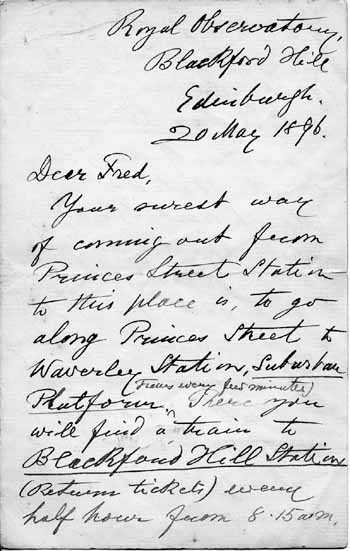 Royal Observatory,
Blackford Hill
Edinburgh.
20 May 1896.
Dear Fred,
Your surest way
of coming out from
Princes Street Station
to this place is, to go
along Princes Street to
Waverley Station, Suburban
(Trams every few minutes)
Platform. There you
will find a train to
Blackford Hill Station
(Return tickets) every
half hour from 8.15 a.m.